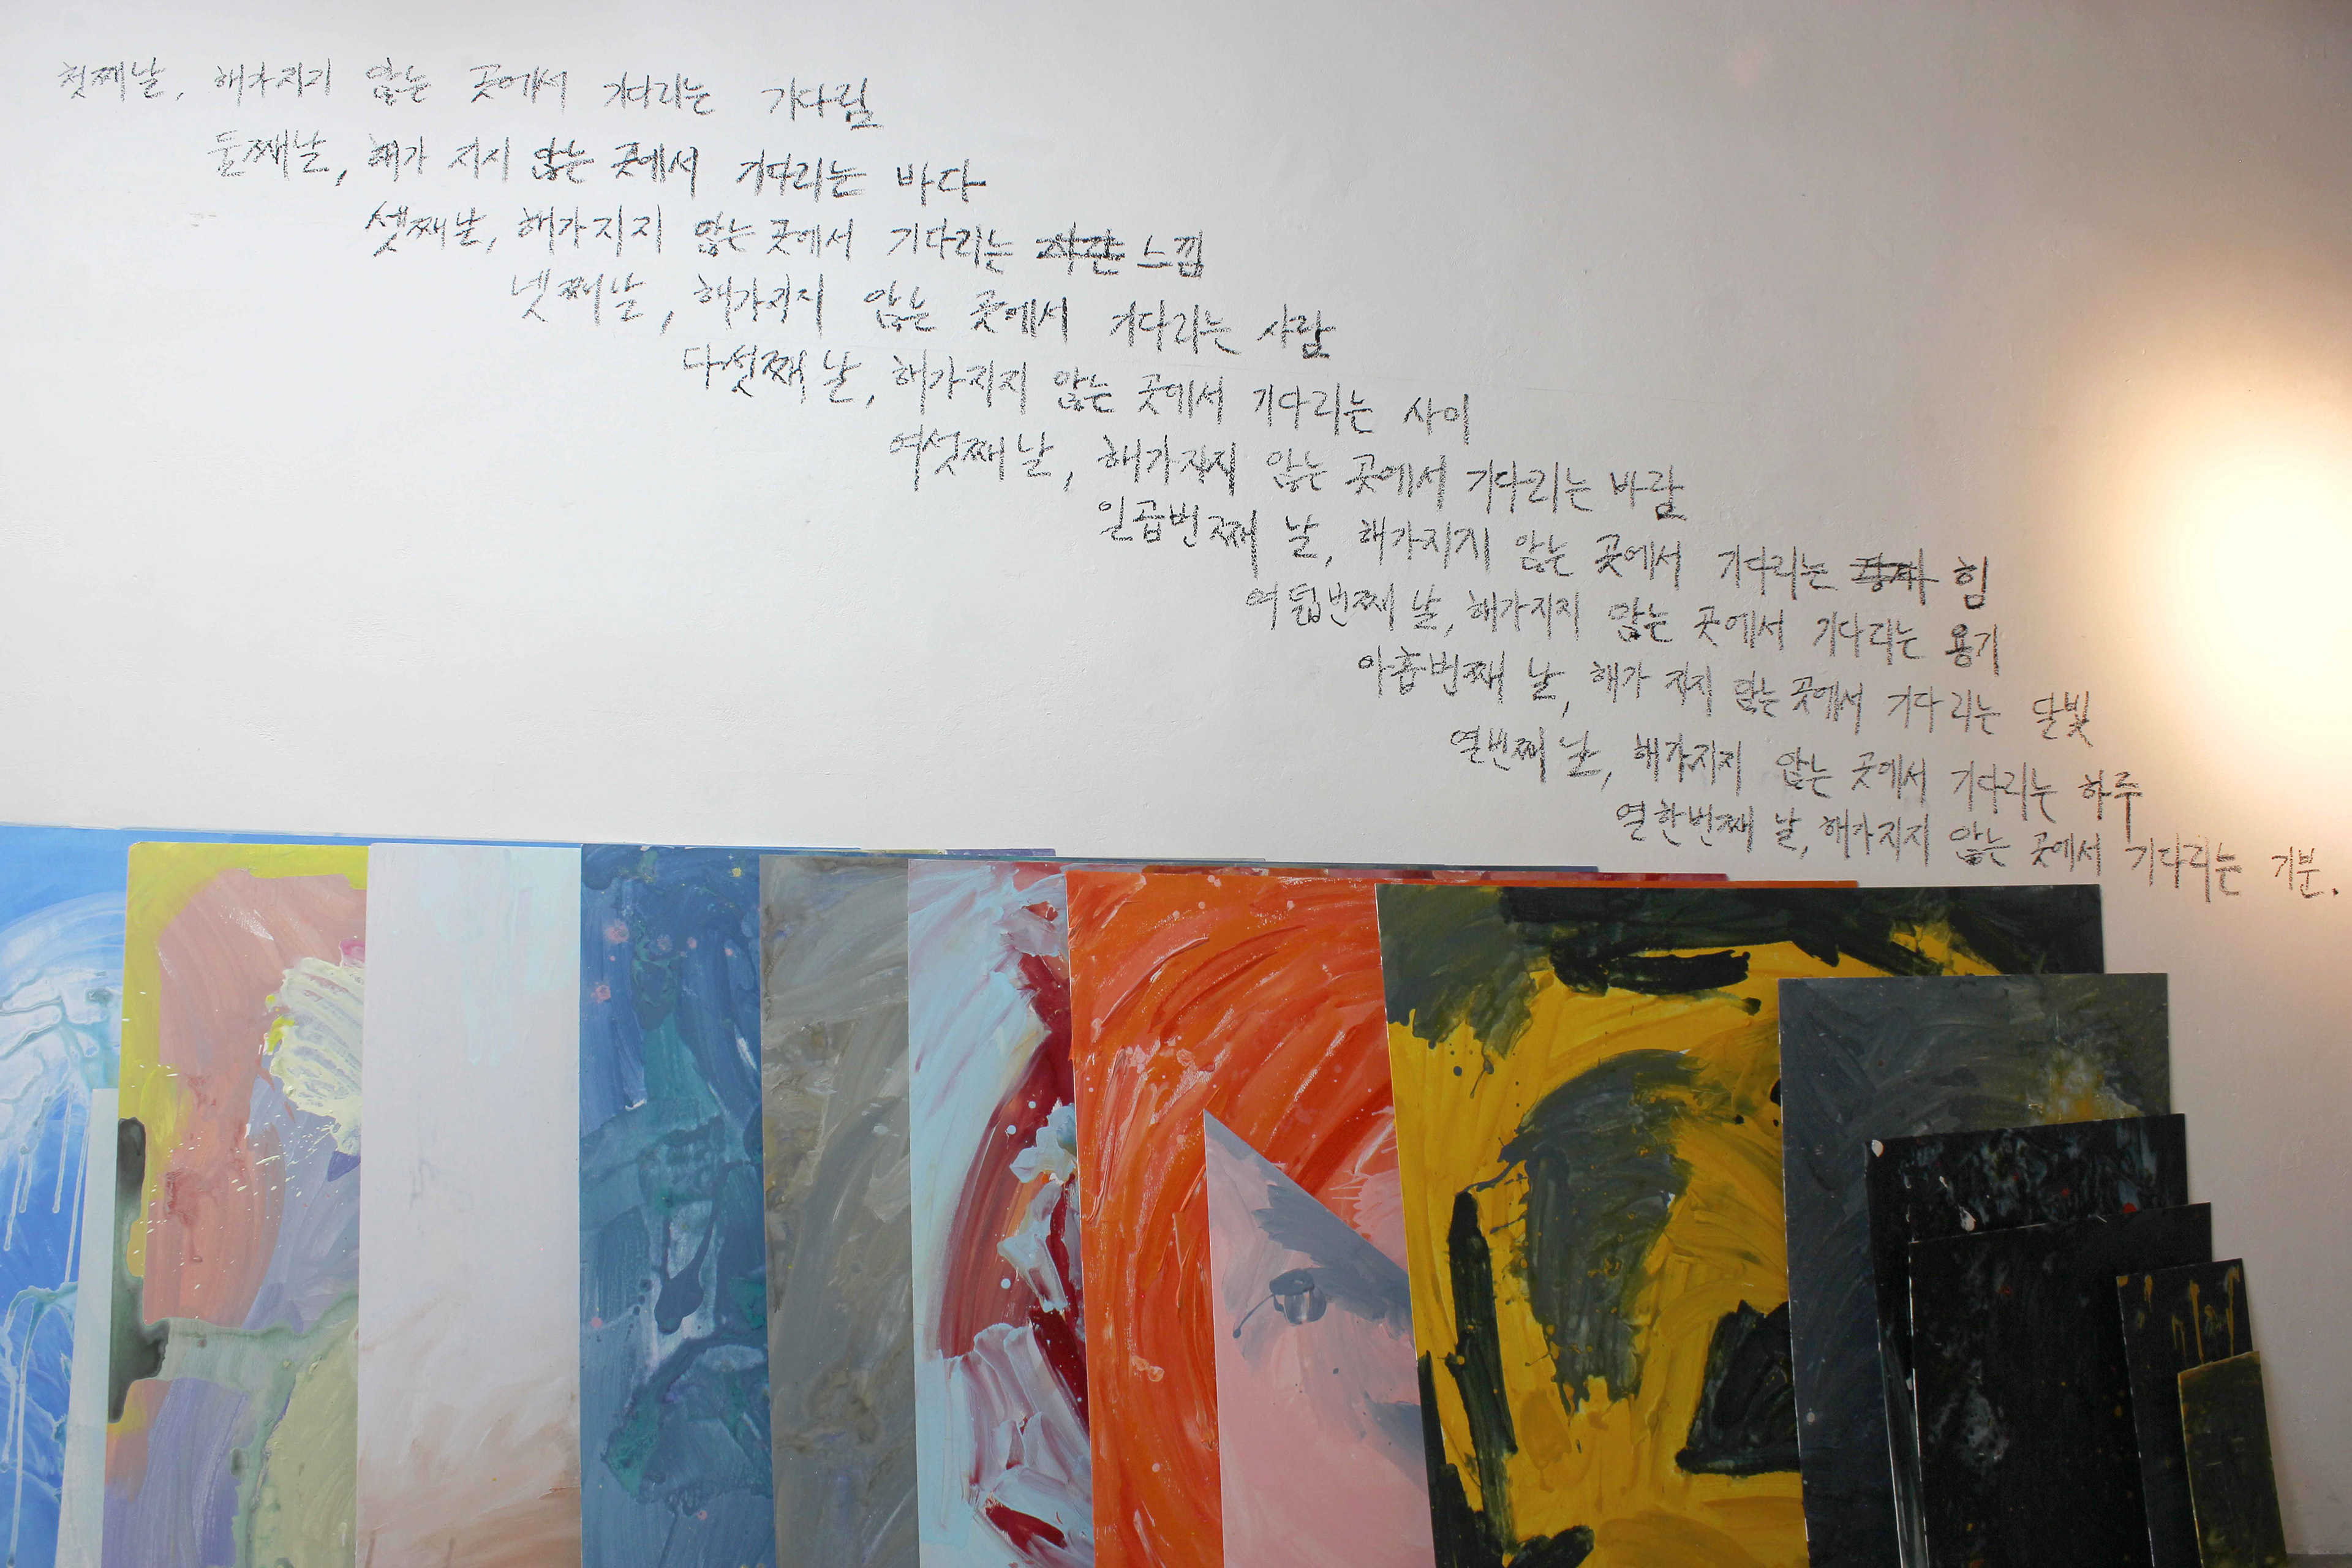 첫째날, 해가지지 않는 곳에서 기다리는 기다림
둘째날, 해가 지지 않는 곳에서 기다리는 바다
셋째날, 해가지지 않는 곳에서 기다리는 느낌
넷째날, 해가지지 않는 곳에서 기다리는 사람
다섯째 날, 해가지지 않는 곳에서 기다리는 사이
여섯째 날, 해가지지 않는 곳에서 기다리는 바람
일곱번째 날, 해가지지 않는 곳에서 기다리는 힘
여덟번째 날, 해가지지 않는 곳에서 기다리는 용기
아홉번째 날, 해가 지지 않는 곳에서 기다리는 달빛
열번째 날, 해가지지 않는 곳에서 기다리는 하루
열한번째 날, 해가지지 않는 곳에서 기다리는 기분.